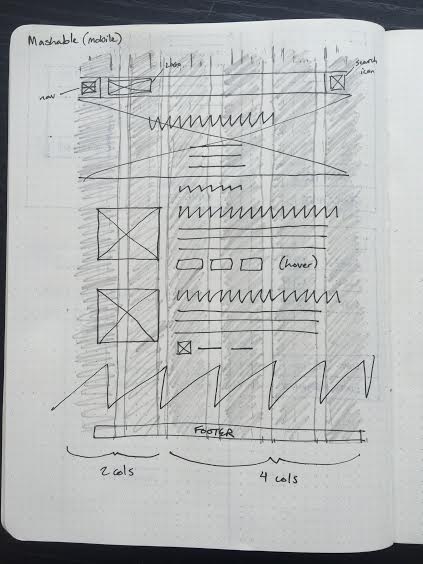 Mashable (mobile)
logo
search
icon
nav
(hover)
FOOTER
2 cols
4 cols